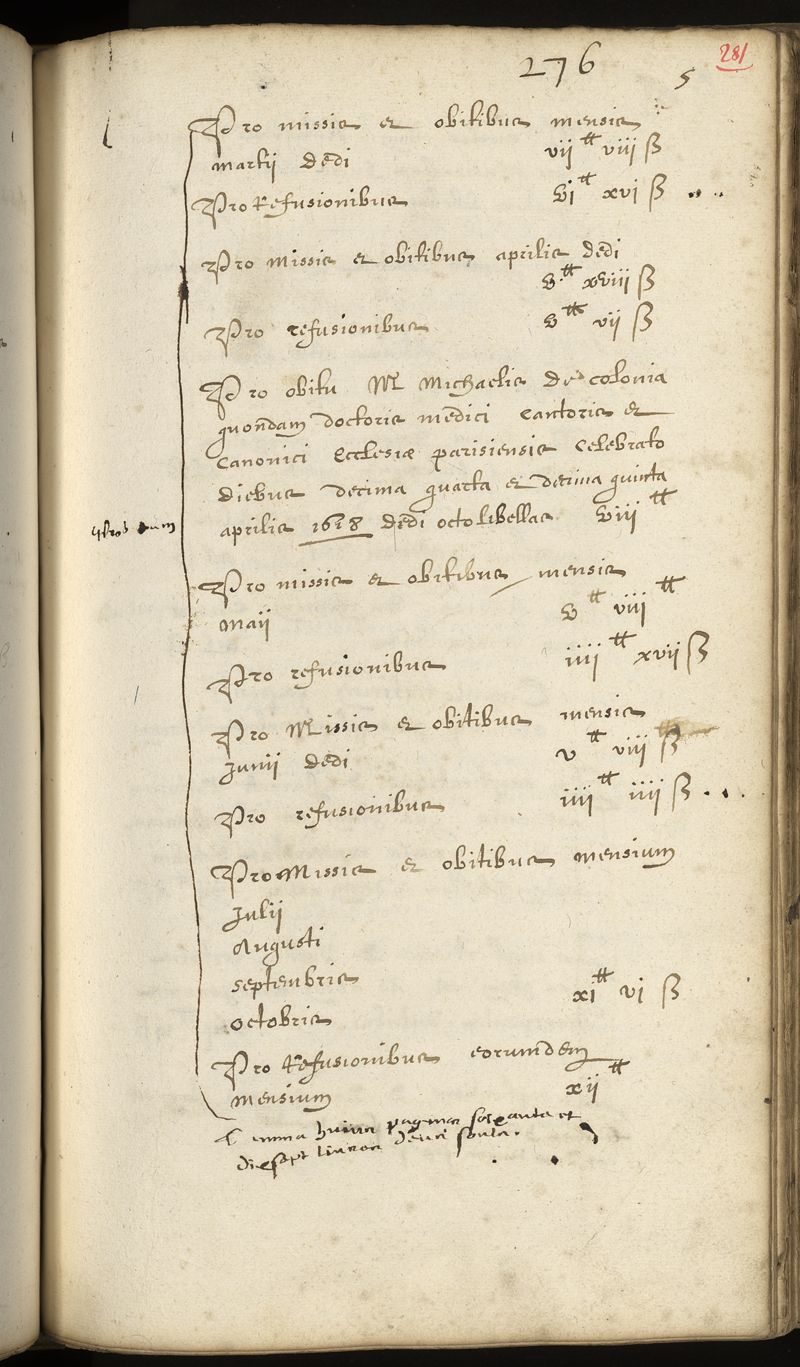 281
276
5
Pro missis et obitibus mensis
martij dedi vij ₶ viij ß
Pro Refusionibus vi ₶ xvi ß
Pro missis et obitibus aprilis dedi
v ₶ xviij ß
Pro refusionibus v ₶ vij ß
Pro obitu Mri Michaelis de colonia
quondam doctoris medici Cantoris et
Canonici Ecclesiæ parisiensis Celebrato
diebus decima quarta et decima quinta
aprilis 1618 dedi octo libellas viij ₶
Pro missis et obitibus mensis
maij v ₶ viij ₶
Pro refusionibus iiij ₶ xvij ß
Pro Missis et obitibus mensis
Junij dedi v ₶ viij ß
Pro refusionibus iiij ₶ iiij ß
Pro Missis et obitibus mensium
Julij
Augusti
septembris
octobris xi ₶ vi ß
Pro Refusionibus eorumdem
mensium xij ₶
summa huius paginae soixante et
diesept livres deux soulz.